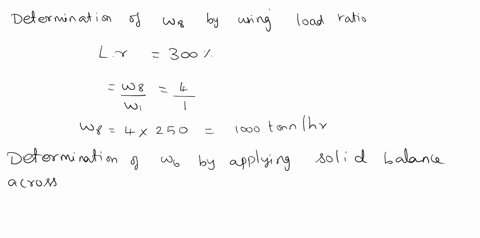 Determination of w8 by using load ratio
L.r = 300%
= w8/w1 = 4/1
w8 = 4 × 250 = 1000 tonn/hr
Determination of w6 by applying solid balance
across